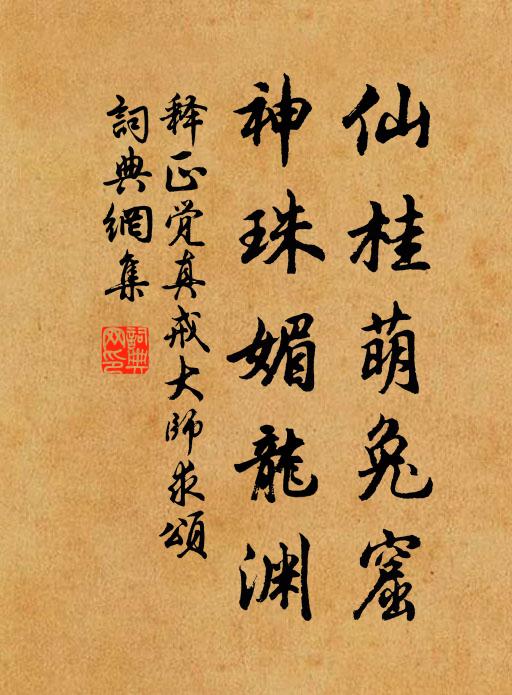 仙桂萌兔窟
神珠媚龍渊
释正觉真戒大師求頌
詞典網集
詞典
网印